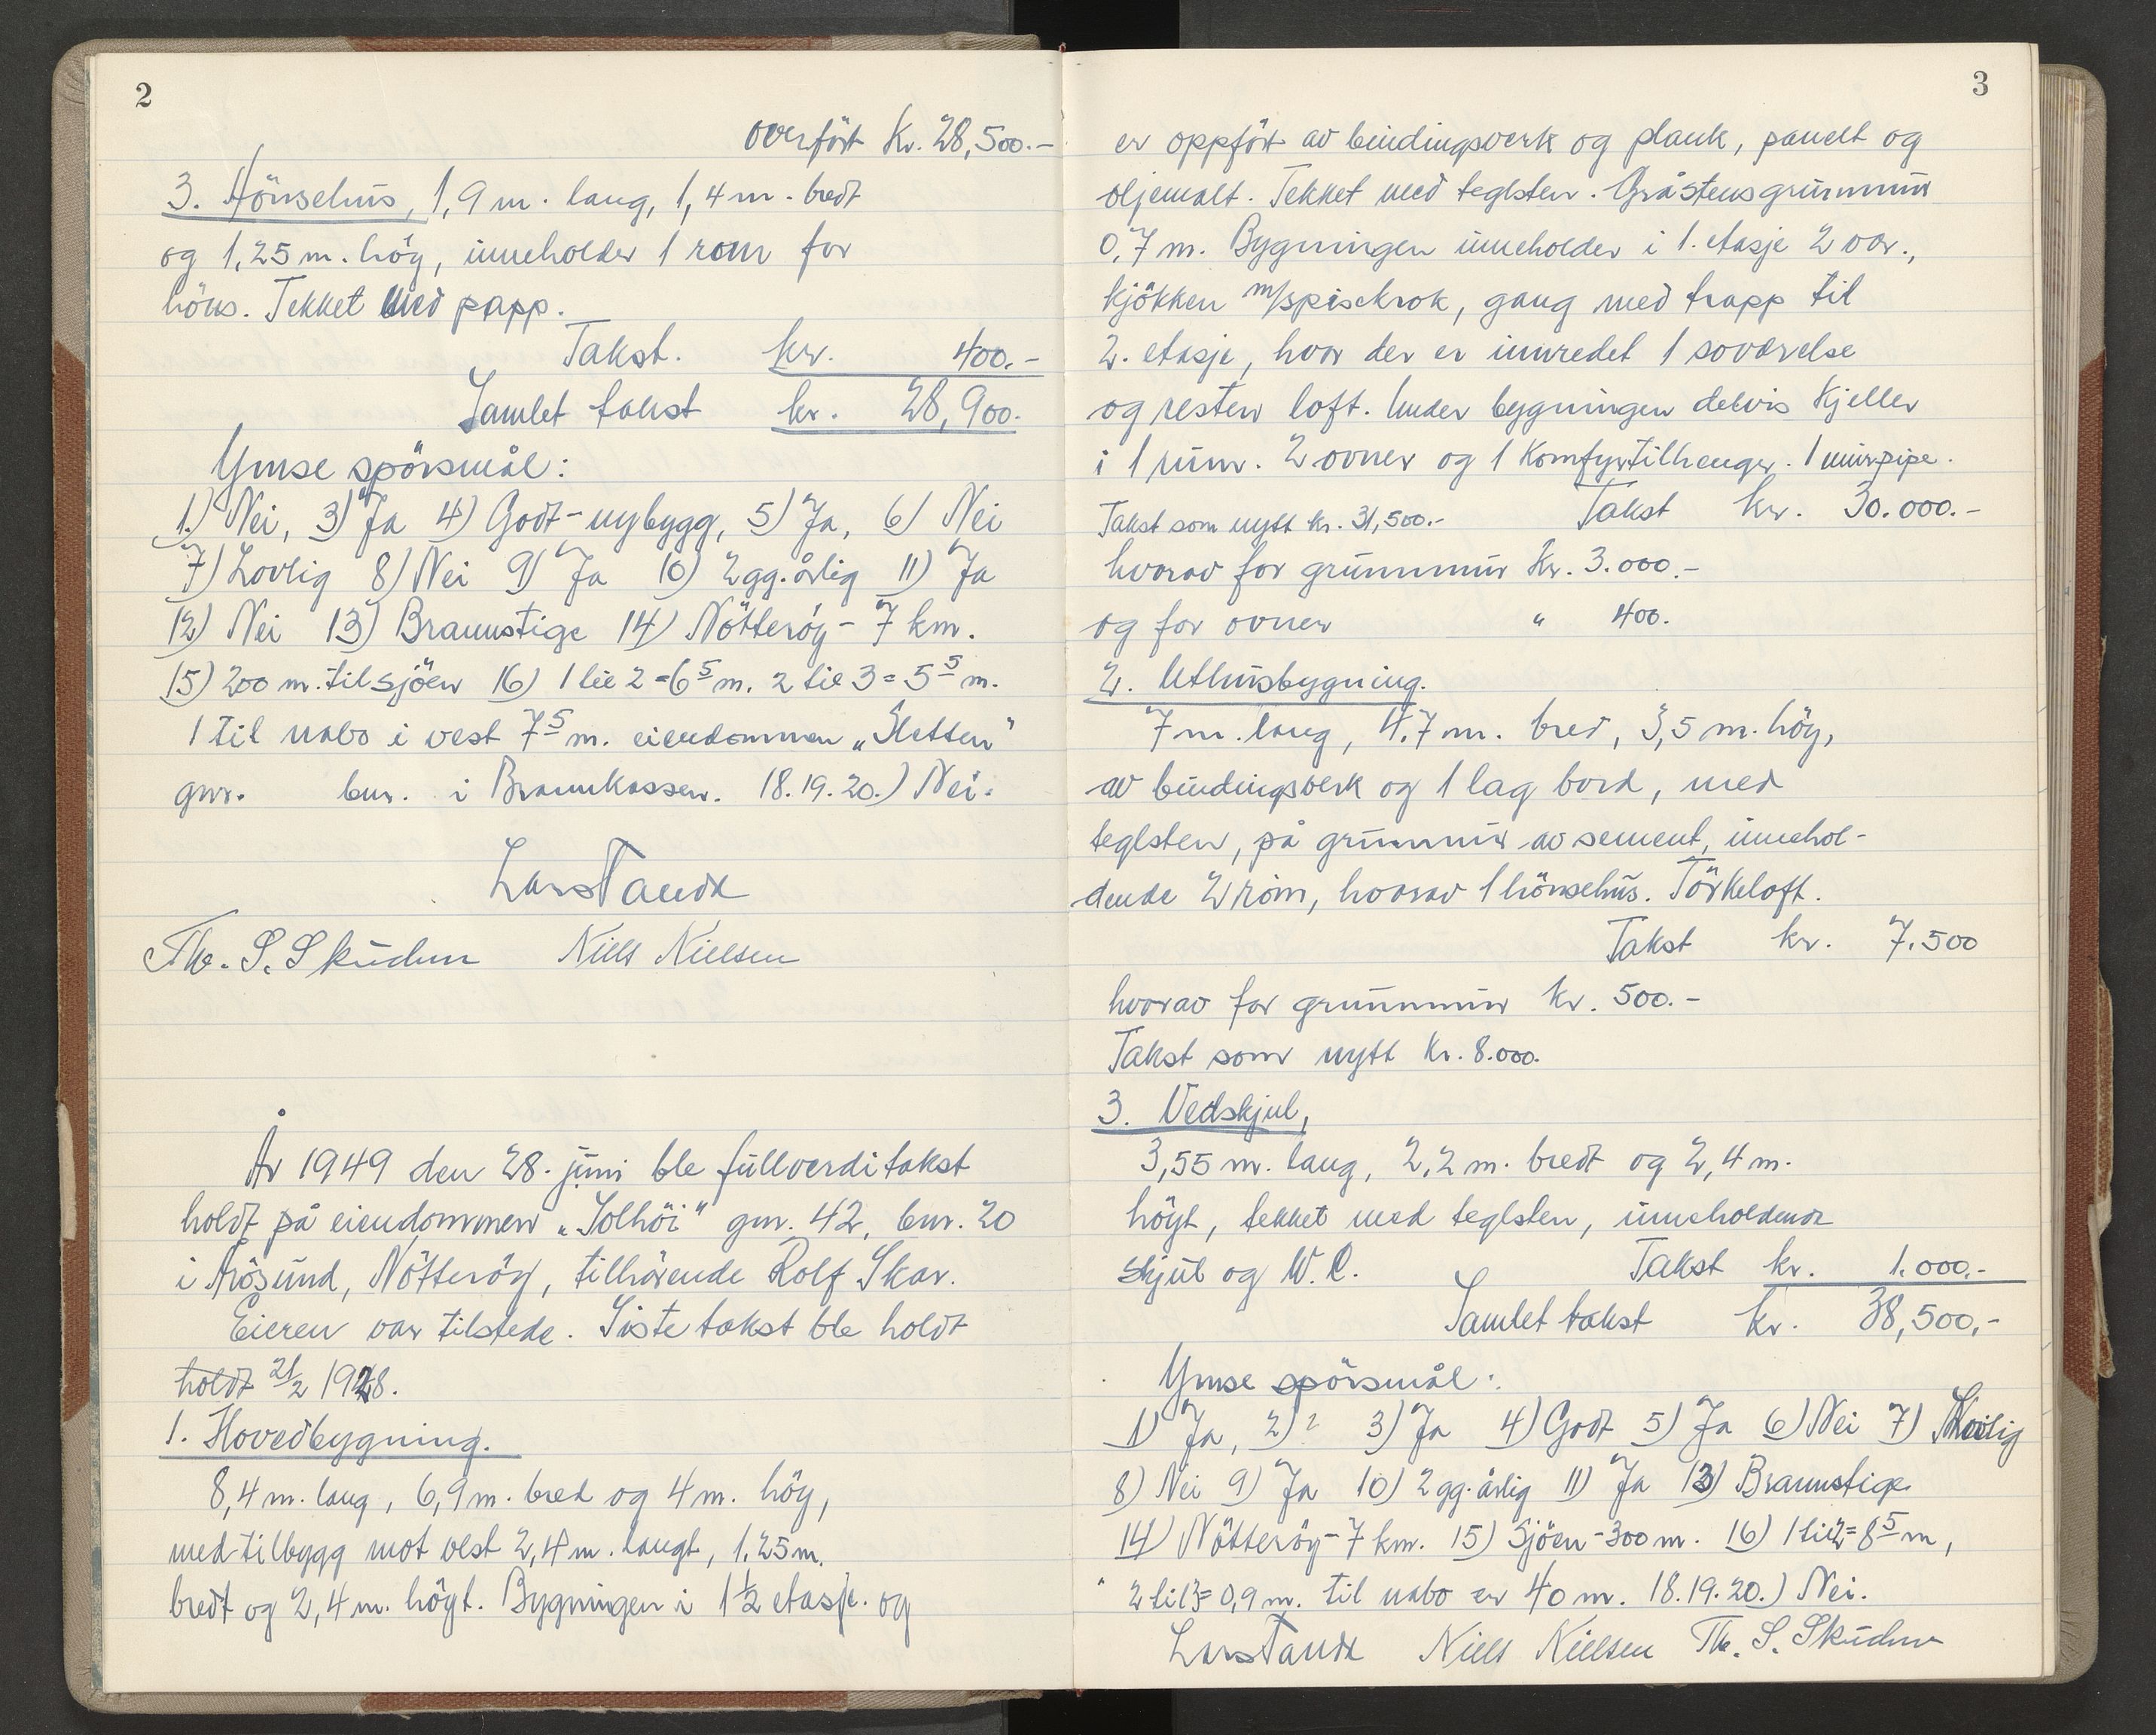 2
overfört Kr. 28,500.-
3. Hönsehus, 1,9 m. lang, 1,4 m. bredt
og 1,25 m. hög, inneholder 1 rom for
höns. Tekket med papp.
Takst. kr. 400.-
Samlet takst kr. 28,900.
Ymse spörsmål:
1.) Nei, 3) Ja 4) Godt-nybygg, 5) Ja, 6) Nei
7) Lovlig 8) Nei 9) Ja 10) 2 gg. årlig 11) Ja
12) Nei 13) Brannstige 14) Nötteröy - 7 km.
15) 200 m. til sjöen 16) 1 til 2 = 6 5 m. 2 til 3 = 5 5 m.
1 til nabo i vest 7 5 m. eiendommen „Sletten"
gnr. bnr. i Brannkassen. 18.19.20.) Nei.
Lars Tandе
Th. S. Skudem Niels Nielsen
År 1949 den 28. juni ble fullverditakst
holdt på eiendommen „Solhöi" gnr. 42, bnr. 20
i Årösund, Nötteröy, tilhörende Rolf Skar.
Eieren var tilstede. Siste takst ble holdt
holdt 21/2 1928.
1. Hovedbygning.
8,4 m. lang, 6,9 m. bred og 4 m. hög,
med tilbygg mot vest 2,4 m. langt, 1,25 m.
bredt og 2,4 m. högt. Bygningen i 1½ etasje. og
3
er oppfört av bindingsverk og plank, panelt og
oljemalt. Tekket med teglsten. Gråstensgrunnmur
0,7 m. Bygningen inneholder i 1. etasje 2 vær.,
kjökken m/spisekrok, gang med trapp til
2. etasje, hvor der er innredet 1 soværelse
og resten loft. Under bygningen delvis kjeller
i 1 rum. 2 ovner og 1 komfyr tilhenger. 1 murpipe.
Takst som nytt kr. 31,500.- Takst kr. 30.000.-
hvorav for grunnmur kr. 3.000.-
og for ovner " 400.
2. Uthusbygning.
7 m. lang, 4,7 m. bred, 3,5 m. hög,
av bindingsverk og 1 lag bord, med
teglsten, på grunnmur av sement, innehol-
dende 2 rom, hvorav 1 hönsehus. Törkeloft.
Takst kr. 7.500
hvorav for grunnmur kr. 500.-
Takst som nytt kr. 8.000.
3. Vedskjul,
3,55 m. lang, 2,2 m. bredt og 2,4 m.
högt, tekket med teglsten, inneholdende
skjul og W.C. Takst kr. 1.000.-
Samlet takst kr. 38,500,-
Ymse spörsmål:
1) Ja, 2) ? 3) Ja 4) Godt 5) Ja 6) Nei 7) Lovlig
8) Nei 9) Ja 10) 2 gg. årlig 11) Ja 13) Brannstige
14) Nötteröy - 7 km. 15) Sjöen - 300 m. 16) 1 til 2 = 8 5 m,
2 til 3 = 0,9 m. til nabo er 40 m. 18.19.20.) Nei.
Lars Tande Niels Nielsen Th. S. Skudem